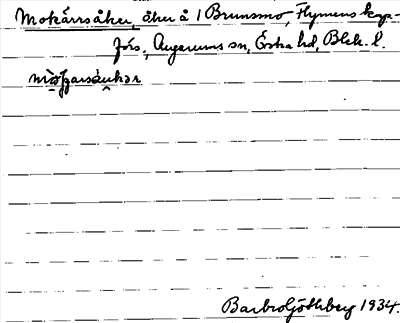 Mokärrsåker, åker å 1 Brunsmo, Flymens kap-
förs., Augerums sn, Östra hd, Blek. l.
Barbro Göthberg 1934.